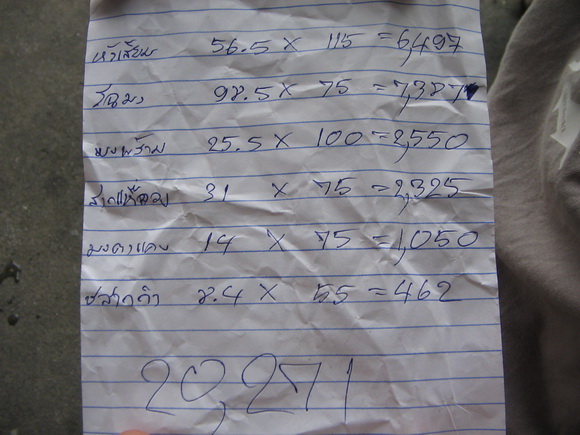 หัวเสี้ยม 56.5 X 115 = 6,497
98.5 X 75 = 7,387
25.5 X 100 = 2,550
31 X 75 = 2,325
มงตาแดง 14 X 75 = 1,050
8.4 X 55 = 462
20,271